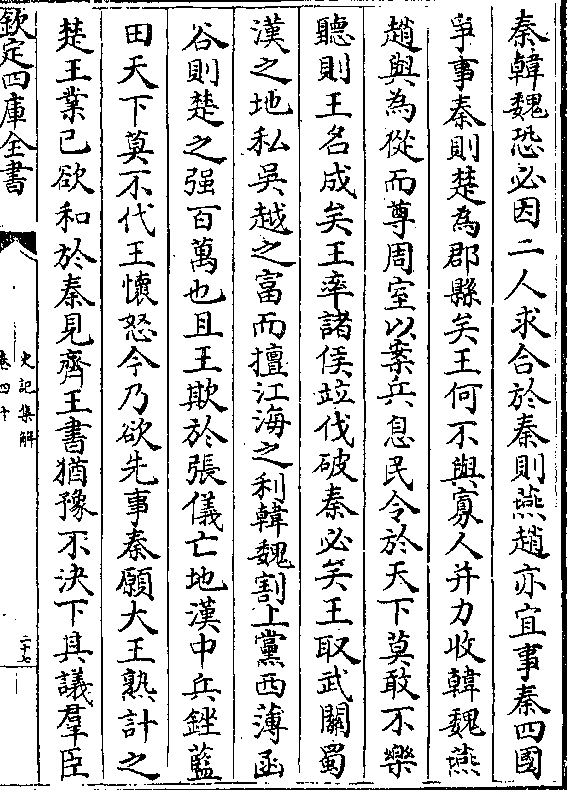 秦韓魏恐必因二人求合於秦則燕趙亦宜事秦四國
爭事秦則楚為郡縣矣王何不與寡人并力收韓魏燕
趙與為從而尊周室以案兵息民令於天下莫敢不樂
聽則王名成矣王率諸侯竝伐破秦必矣王取武關蜀
漢之地私吳越之富而擅江海之利韓魏割上黨西薄函
谷則楚之强百萬也且王欺於張儀亡地漢中兵銼藍
田天下莫不代王懷怒今乃欲先事秦願大王熟計之
楚王業已欲和於秦見齊王書猶豫不決下其議羣臣
欽定四庫全書
史記集解
卷四十
二十七